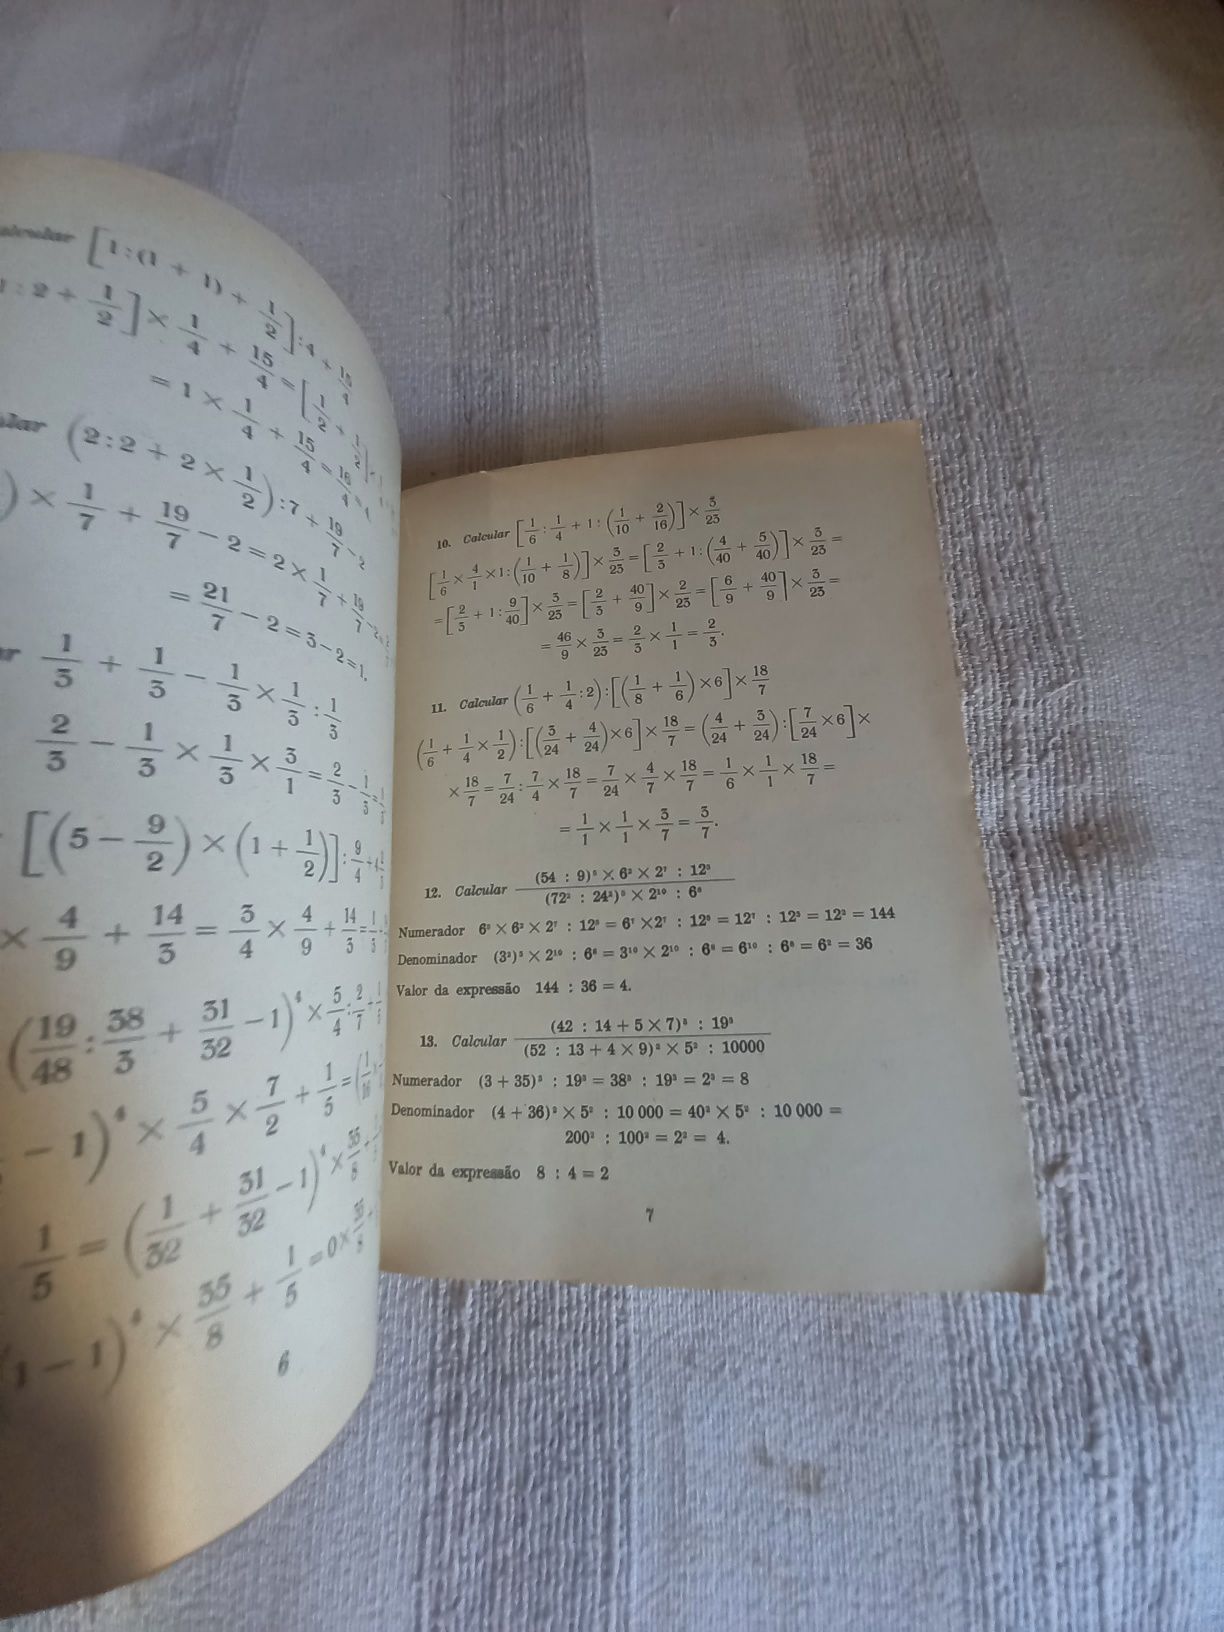 [1:(1 + 1) + 1/2]:4 + 15/4
1:2 + 1/2] × 1/4 + 15/4 = [1/2 + 1/2] ×
= 1 × 1/4 + 15/4 = 16/4 = 4.
(2:2 + 2 × 1/2):7 + 19/7 − 2
) × 1/7 + 19/7 − 2 = 2 × 1/7 + 19/7 − 2 =
= 21/7 − 2 = 3 − 2 = 1.
1/3 + 1/3 − 1/3 × 1/3 : 1/3
2/3 − 1/3 × 1/3 × 3/1 = 2/3 − 1/3 = 1/3
[(5 − 9/2) × (1 + 1/2)]: 9/4 +
× 4/9 + 14/3 = 3/4 × 4/9 + 14/3 = 1/3 +
(19/48 : 38/3 + 31/32 − 1)⁴ × 5/4 : 2/7 + 1/5
− 1)⁴ × 5/4 × 7/2 + 1/5 = (
1/5 = (1/32 + 31/32 − 1)⁴ × 35/8 +
(1 − 1)⁴ × 35/8 + 1/5 = 0 × 35/8
6
10. Calcular [1/6 : 1/4 + 1 : (1/10 + 2/16)] × 3/23
[1/6 × 4/1 × 1:(1/10 + 1/8)] × 3/23 = [2/3 + 1:(4/40 + 5/40)] × 3/23 =
= [2/3 + 1: 9/40] × 3/23 = [2/3 + 40/9] × 2/23 = [6/9 + 40/9] × 3/23 =
= 46/9 × 3/23 = 2/3 × 1/1 = 2/3.
11. Calcular (1/6 + 1/4 : 2):[(1/8 + 1/6) × 6] × 18/7
(1/6 + 1/4 × 1/2):[(3/24 + 4/24) × 6] × 18/7 = (4/24 + 3/24):[7/24 × 6] ×
× 18/7 = 7/24 : 7/4 × 18/7 = 7/24 × 4/7 × 18/7 = 1/6 × 1/1 × 18/7 =
= 1/1 × 1/1 × 3/7 = 3/7.
12. Calcular (54 : 9)⁵ × 6² × 2⁷ : 12⁵ / (72² : 24²)⁵ × 2¹⁰ : 6⁸
Numerador 6⁵ × 6² × 2⁷ : 12⁵ = 6⁷ × 2⁷ : 12⁵ = 12⁷ : 12⁵ = 12² = 144
Denominador (3²)⁵ × 2¹⁰ : 6⁸ = 3¹⁰ × 2¹⁰ : 6⁸ = 6¹⁰ : 6⁸ = 6² = 36
Valor da expressão 144 : 36 = 4.
13. Calcular (42 : 14 + 5 × 7)³ : 19³ / (52 : 13 + 4 × 9)² × 5² : 10000
Numerador (3 + 35)³ : 19³ = 38³ : 19³ = 2³ = 8
Denominador (4 + 36)² × 5² : 10 000 = 40² × 5² : 10 000 =
200² : 100² = 2² = 4.
Valor da expressão 8 : 4 = 2
7